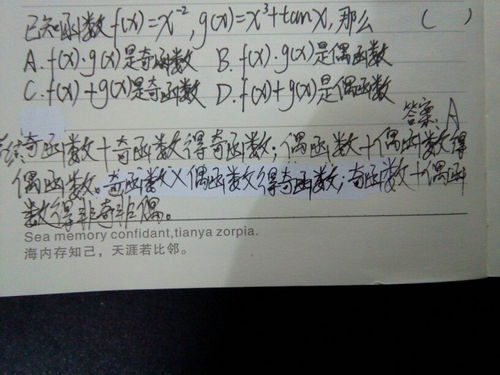 已知函数f(x)=x⁻²,g(x)=x³+tanx,那么 ( )
A.f(x)·g(x)是奇函数 B.f(x)·g(x)是偶函数
C.f(x)+g(x)是奇函数 D.f(x)+g(x)是偶函数
答案、A
奇函数+奇函数得奇函数;偶函数+偶函数得
偶函数。奇函数×偶函数得奇函数;奇函数+偶函
数得非奇非偶。
Sea memory confidant,tianya zorpia.
海内存知己,天涯若比邻。